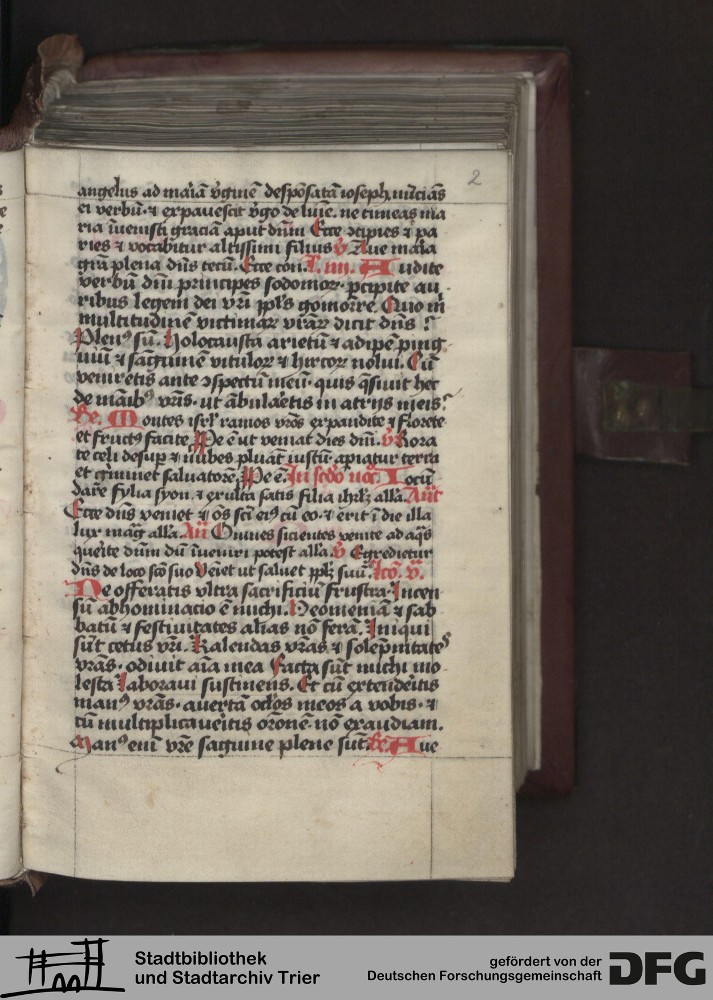 2
angelus ad mariā v̓ginē despōsatā ioseph nūciās
ei verbū ⁊ expauescit v̓go de luīe. ne timeas ma
ria īuenisti graciā aput dnm̄ Ecce ɔcipies ⁊ pa
ries ⁊ vocabitur altissimi filius v̓ Aue maria
grā plena dn̄s tecū. Ecce con. L. iiii. Audite
verbū dn̄i principes sodomoꝝ. ꝑcipite au
ribus legem dei vr̄i ppl̄s gomorre. Quo m̄
multitudinē victimaꝝ vrāꝝ dicit dn̄s?
Plenꝰ sū. Holocausta arietū ⁊ adipē ping
uiū ⁊ sāguinē vituloꝝ ⁊ hircoꝝ nolui. Cū
veniretis ante ɔspectū meū. quis q̄siuit hec
de māibꝰ vr̄is. ut ābularetis in atrijs meis?
Re. Montes isrl̄ ramos vrōs expandite ⁊ florete
et fructꝰ facite Pͤ ē ut veniat dies dn̄i. v̓ Rora
te celi desuꝑ ⁊ nubes pluāt iustū apiatur terra
et gͥminet saluatorē. Pͤ ē. In scd̄o noc̄. Iocū
dare fylia syon. ⁊ exulta satis filia ihrl̄m all̄a. Ant̄
Ecce dn̄s veniet ⁊ oēs scī eiꝰ cū eo. ⁊ erit ī die illa
lux magͣ all̄a. An̄ Omnes sicientes venite ad aq̄s
querite dnm̄ dū īueniri potest all̄a. v̓ Egredietur
dn̄s de loco scō suo Veniet ut saluet ppl̄m suū. Lcō. v.
Ne offeratis vltra sacrificiū frustra. Incen
sū abhominacio ē michi. Neomeniā ⁊ sab
batū ⁊ festiuitates alias nō ferā. Iniqui
sūt cetus vr̄i. Kalendas vrās ⁊ solēpnitates
vrās. odiuit aīa mea Facta sūt michi mo
lesta laboraui sustinens. Et cū extenderitis
manꝰ vrās. auertā oclōs meos a vobis. ⁊
cū multiplicaueritis orōnē. nō exaudiam.
Manꝰ enī vrē sāguine plene sūt. Re. Aue
Stadtbibliothek
und Stadtarchiv Trier
gefördert von der
Deutschen Forschungsgemeinschaft DFG